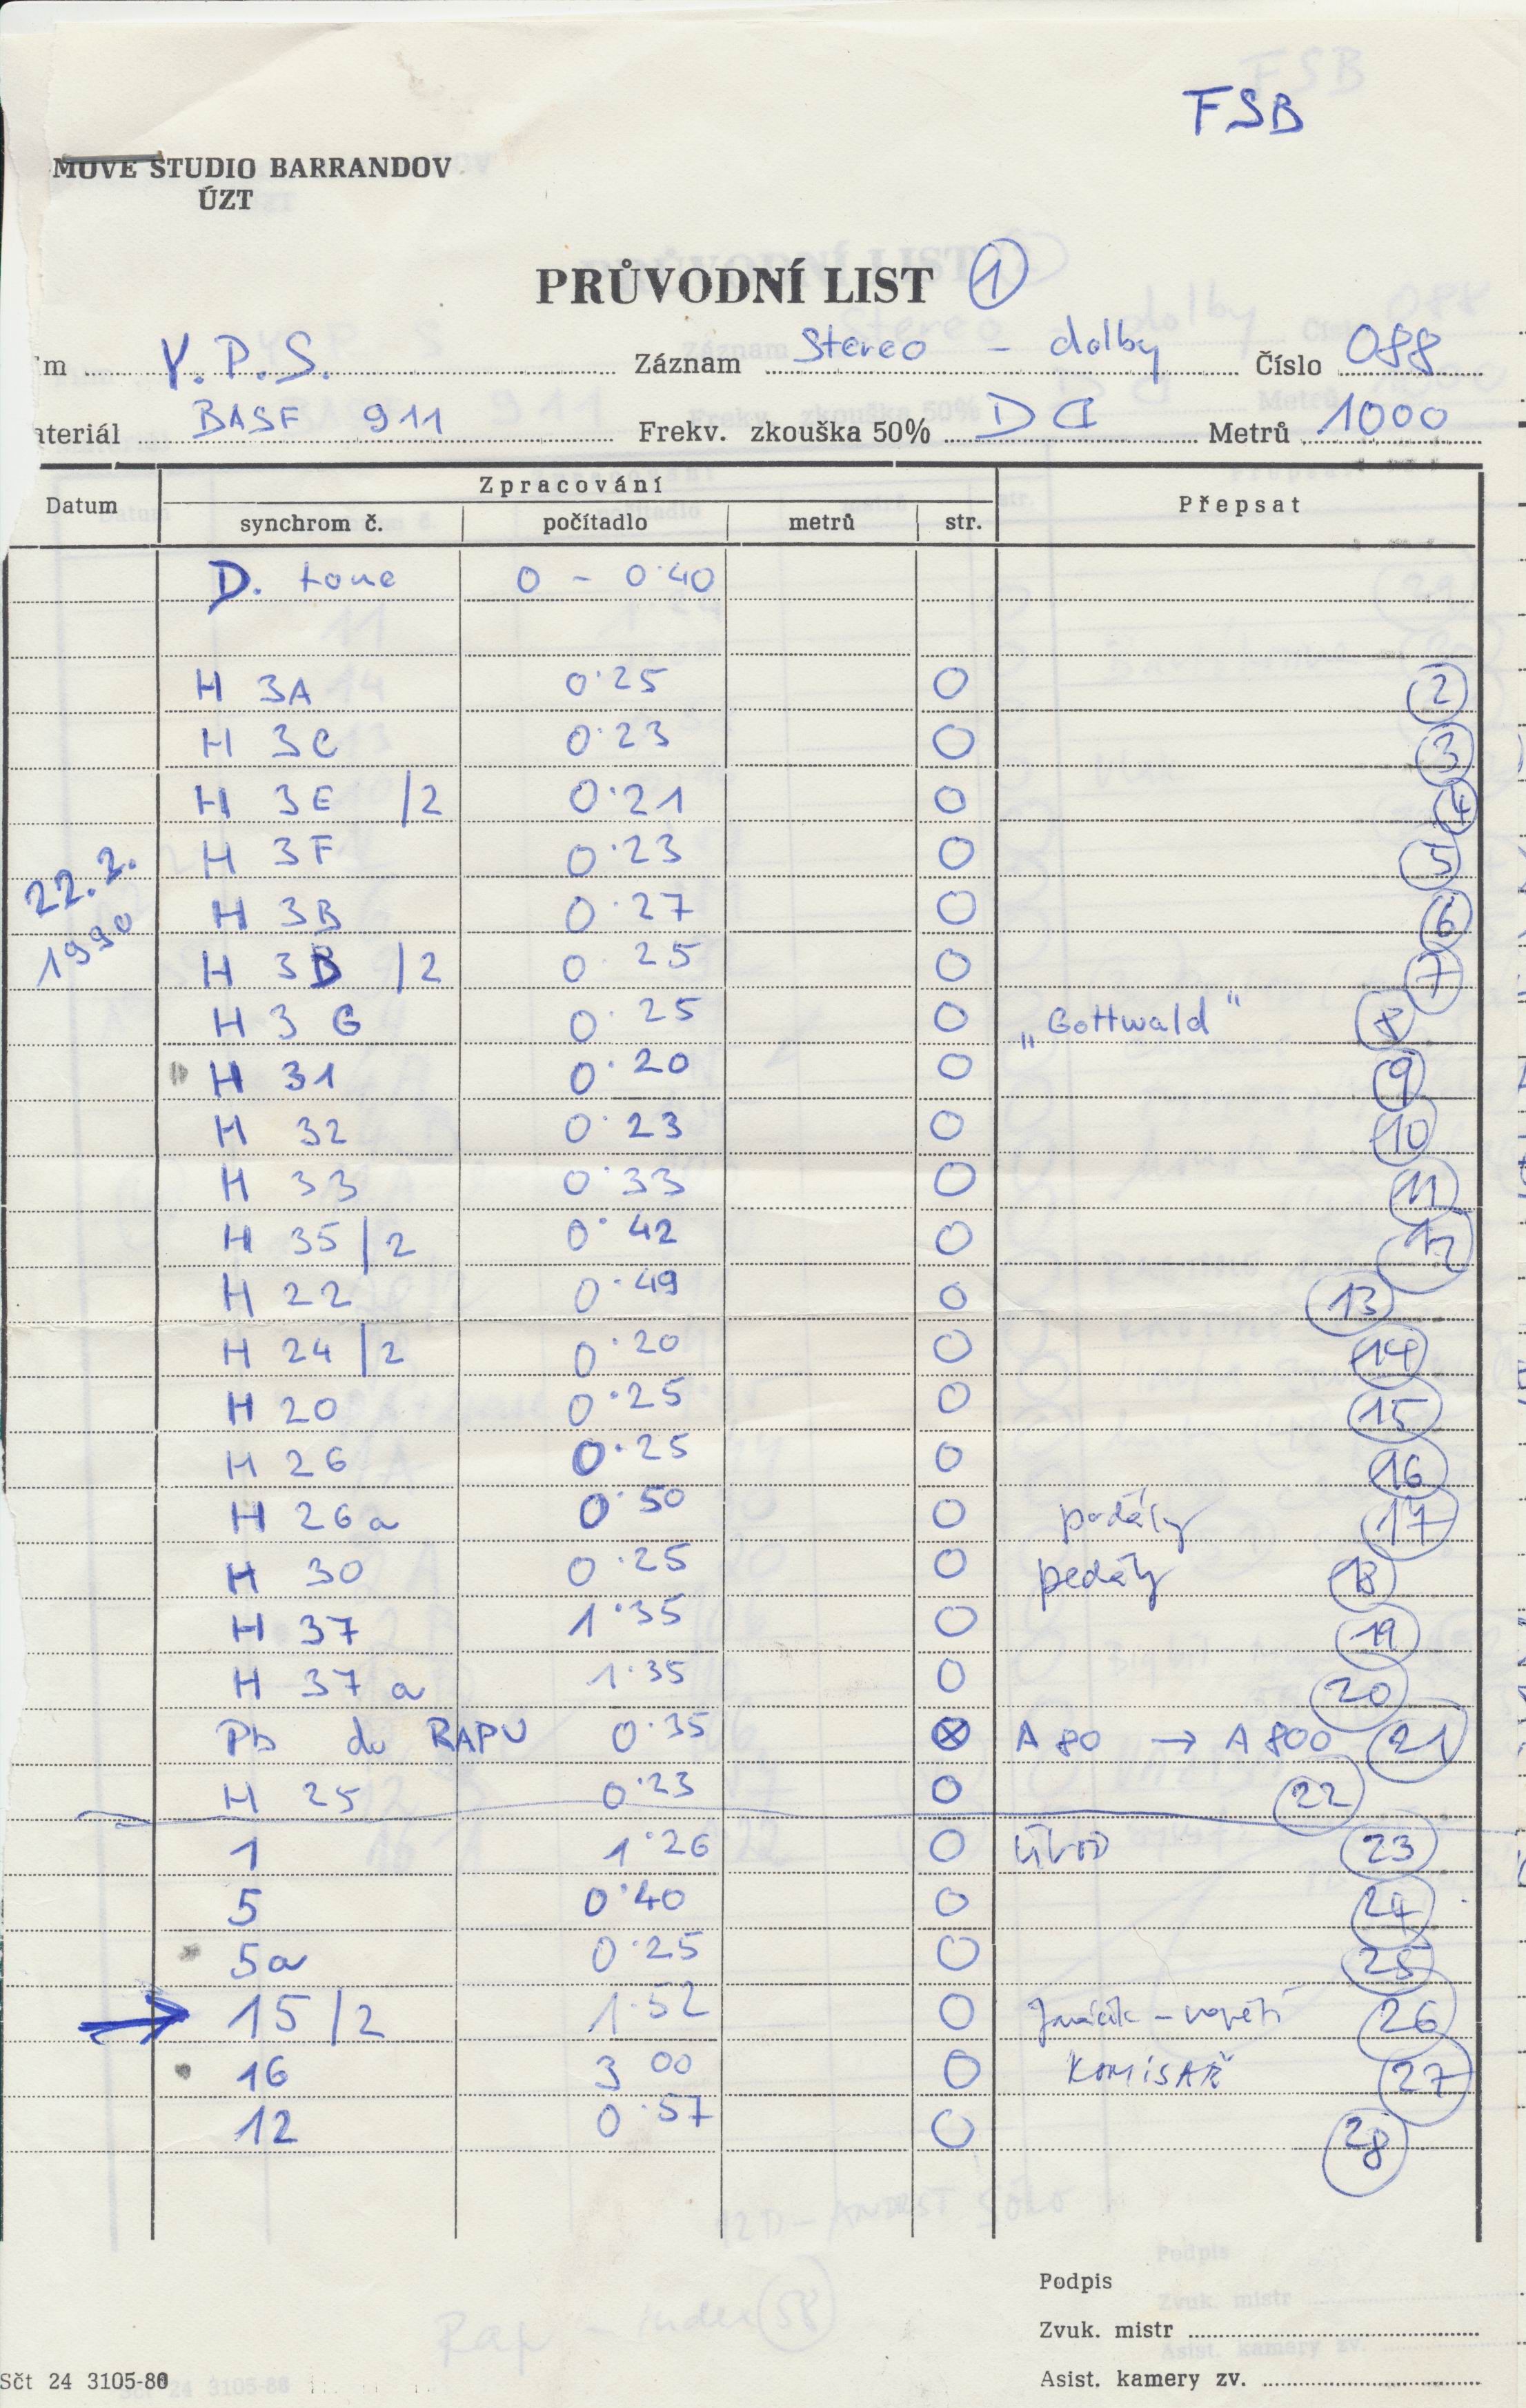 FSB
MOVÉ STUDIO BARRANDOV
ÚZT
PRŮVODNÍ LIST 1
m V.P.S. Záznam Stereo - dolby Číslo 088
ateriál BASF 911 Frekv. zkouška 50% Metrů 1000
Datum Zpracování Přepsat
synchrom č. počítadlo metrů str.
D. tone 0 - 0·40
H 3A 0·25 O 2
H 3C 0·23 O 3
H 3E /2 0·21 O 4
H 3F 0·23 O 5
22.2. H 3B 0·27 O 6
1990 H 3D /2 0·25 O 7
H 3G 0·25 O „Gottwald“ 8
H 31 0·20 O 9
H 32 0·23 O 10
H 33 0·33 O 11
H 35/2 0·42 O 12
H 22 0·49 O 13
H 24/2 0·20 O 14
H 20 0·25 O 15
H 26 0·25 O 16
H 26a 0·50 O pedály 17
H 30 0·25 O pedály 18
H 37 1·35 O 19
H 37a 1·35 O 20
Pb do RAPU 0·35 ⊗ A80 → A800 21
H 25 0·23 O 22
1 1·26 O ÚVOD 23
5 0·40 O 24
5a 0·25 O 25
→ 15/2 1·52 O 26
16 3 00 O KOMISAŘ 27
12 0·57 O 28
Podpis
Zvuk. mistr
Sčt 24 3105-80 Asist. kamery zv.